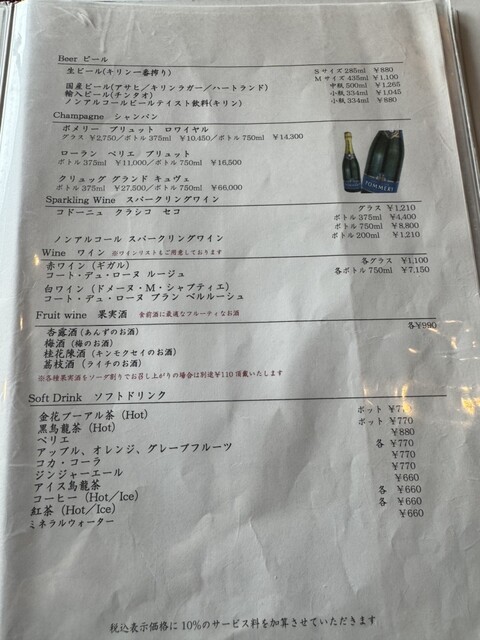 Beer ビール
生ビール(キリン一番搾り) Sサイズ 285ml ¥880
Mサイズ 435ml ¥1,100
国産ビール(アサヒ／キリンラガー／ハートランド) 中瓶 500ml ¥1,265
輸入ビール(チンタオ) 小瓶 334ml ¥1,045
ノンアルコールビールテイスト飲料(キリン) 小瓶 334ml ¥880
Champagne シャンパン
ポメリー ブリュット ロワイヤル
グラス ¥2,750／ボトル 375ml ¥10,450／ボトル 750ml ¥14,300
ローラン ペリエ ブリュット
ボトル 375ml ¥11,000／ボトル 750ml ¥16,500
クリュッグ グランド キュヴェ
ボトル 375ml ¥27,500／ボトル 750ml ¥66,000
POMMERY
Sparkling Wine スパークリングワイン
コドーニュ クラシコ セコ グラス ¥1,210
ボトル 375ml ¥4,400
ボトル 750ml ¥8,800
ノンアルコール スパークリングワイン ボトル 200ml ¥1,210
Wine ワイン ※ワインリストもご用意しております
赤ワイン (ギガル) 各グラス ¥1,100
コート・デュ・ローヌ ルージュ 各ボトル 750ml ¥7,150
白ワイン (ドメーヌ・M・シャプティエ)
コート・デュ・ローヌ ブラン ベルルーシュ
Fruit wine 果実酒 食前酒に最適なフルーティなお酒
杏露酒 (あんずのお酒) 各¥990
梅酒 (梅のお酒)
桂花陳酒 (キンモクセイのお酒)
茘枝酒 (ライチのお酒)
※各種果実酒をソーダ割りでお召し上がりの場合は別途¥110頂戴いたします
Soft Drink ソフトドリンク
金花プーアル茶 (Hot) ポット ¥7
黒烏龍茶 (Hot) ポット ¥770
ペリエ ¥880
アップル、オレンジ、グレープフルーツ 各 ¥770
コカ・コーラ ¥770
ジンジャーエール ¥770
アイス烏龍茶 ¥660
コーヒー (Hot／Ice) 各 ¥660
紅茶 (Hot／Ice) 各 ¥660
ミネラルウォーター ¥660
税込表示価格に10%のサービス料を加算させていただきます